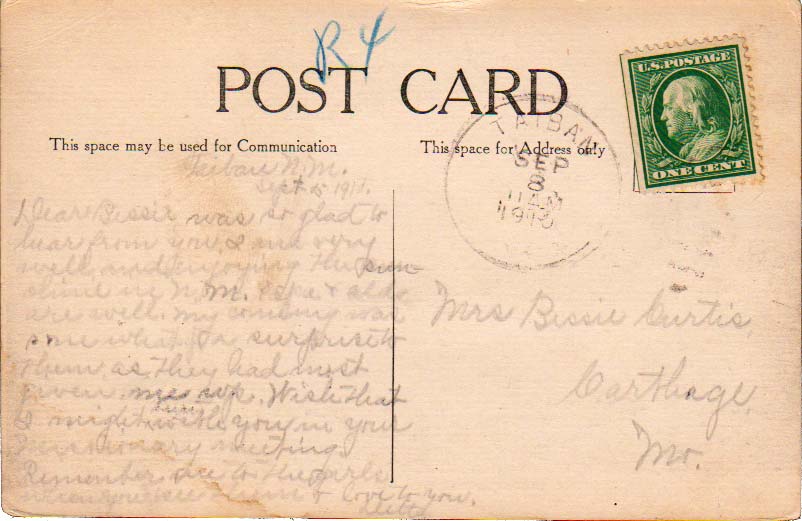 R 4
POST CARD
U.S. POSTAGE
ONE CENT
This space may be used for Communication
This space for Address only
TAIBAN
SEP
8
11 AM
1910
Taiban N.M.
Sept
Dear Bessie was so glad to
hear from you I am very
well and enjoying the sun
shine in N.M.
are well. my coming was
some what a surprise to
them as they had most
given me up. Wish that
I might with you in your
missionary meeting.
Remember me to the girls
when you see them & love to you.
Mrs Bessie Curtis,
Carthage,
Mo.